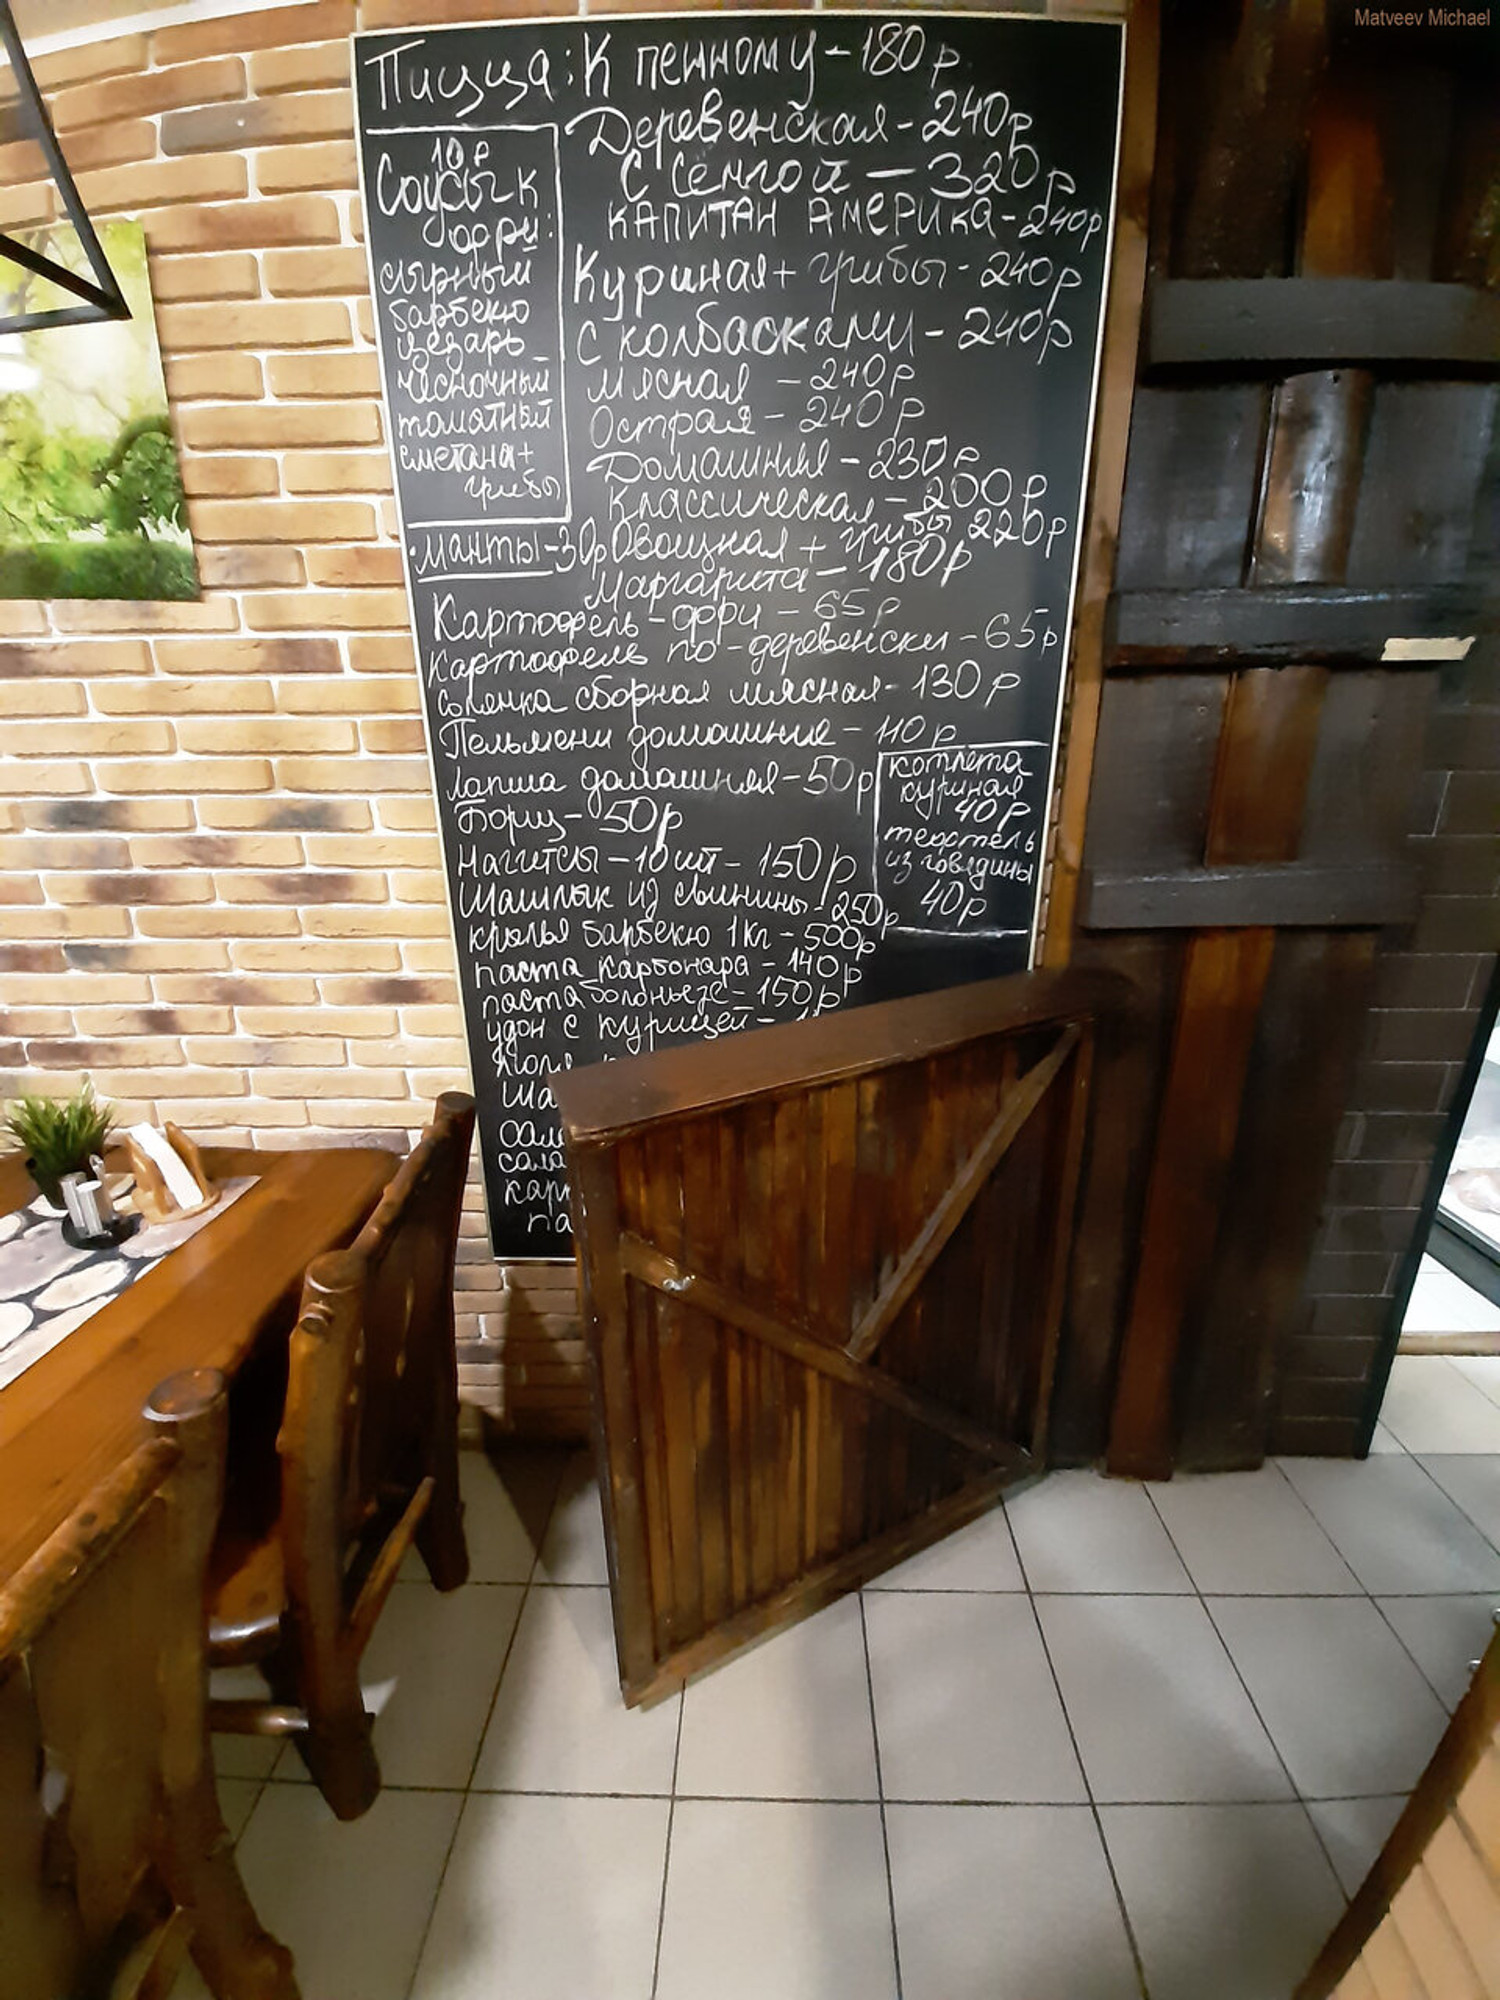 Matveev Michael
Пицца: К пенному - 180 р
Деревенская - 240 р
С сёмгой - 320 р
КАПИТАН АМЕРИКА - 240 р
Куриная + грибы - 240 р
С колбасками - 240 р
мясная - 240 р
Острая - 240 р
Домашняя - 230 р
Классическая - 200 р
Овощная + грибы 220 р
Маргарита - 180 р
10 р
Соусы к
фри:
сырный
барбекю
цезарь
чесночный
томатный
сметана +
грибы
манты - 30 р
Картофель-фри - 65 р
Картофель по-деревенски - 65 р
солянка сборная мясная - 130 р
Пельмени домашние - 110 р
Лапша домашняя - 50 р
Борщ - 50 р
Наггитсы - 10 шт - 150 р
Шашлык из свинины - 250 р
крылья барбекю 1 кг - 500 р
паста карбонара - 140 р
паста болоньезе - 150 р
удон с курицей -
котлета
куриная
40 р
тефтель
из говядины
40 р